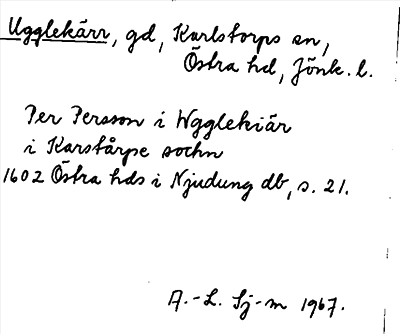 Ugglekärr, gd, Karlstorps sn,
Östra hd, Jönk. l.
Per Persson i Wgglekiär
i Karstårpe sochn
1602 Östra hds i Njudung db, s. 21.
A.-L. Sj-m 1967.